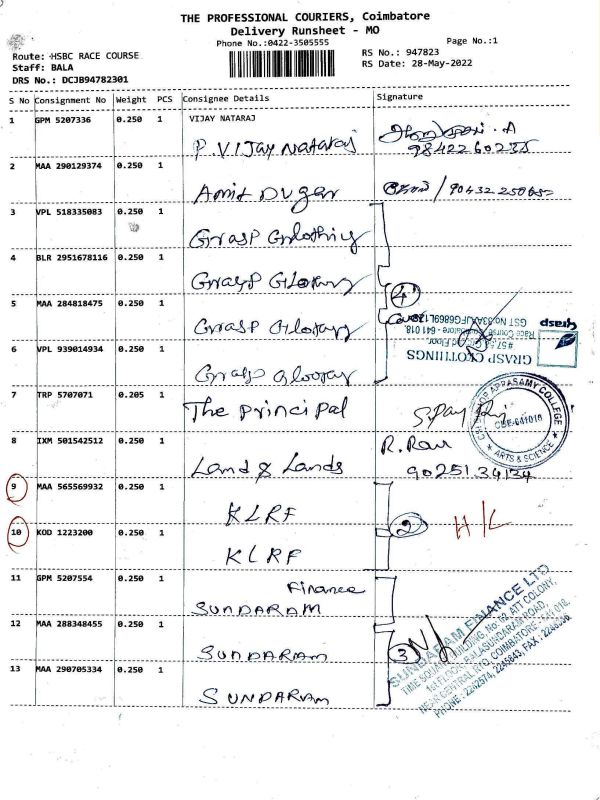 THE PROFESSIONAL COURIERS, Coimbatore
Delivery Runsheet - MO
Phone No.:0422-3505555
Page No.:1
Route: HSBC RACE COURSE
RS No.: 947823
Staff: BALA
RS Date: 28-May-2022
DRS No.: DCJB94782301
S No Consignment No Weight PCS Consignee Details Signature
1 GPM 5207336 0.250 1 VIJAY NATARAJ
P VIJay Nataraj
9842260235
2 MAA 290129374 0.250 1
Amit Dugar
3 VPL 518335083 0.250 1
Grasp Clothing
4 BLR 2951678116 0.250 1
Grasp
4
5 MAA 284818475 0.250 1
Grasp
Grasp
GRASP CLOTHINGS
Race Course, Coimbatore - 641 018.
6 VPL 939014934 0.250 1
Grasp
7 TRP 5707071 0.205 1
The principal
APPASAMY COLLEGE
CBE-641018
ARTS & SCIENCE
8 IXM 501542512 0.250 1
Land & Lands
R. Ravi
90251 34134
9 MAA 565569932 0.250 1
KLRF
2
H/L
10 KOD 1223200 0.250 1
KLRF
11 GPM 5207554 0.250 1
Finance
SUNDARAM
12 MAA 288348455 0.250 1
SUNDARAM
3
13 MAA 290705334 0.250 1
SUNDARAM
SUNDARAM FINANCE LTD
TIME SQUARE BUILDING, No: 62, ATT COLONY,
1st FLOOR, BALASUNDARAM ROAD,
NEAR CENTRAL RTO, COIMBATORE - 641 018.